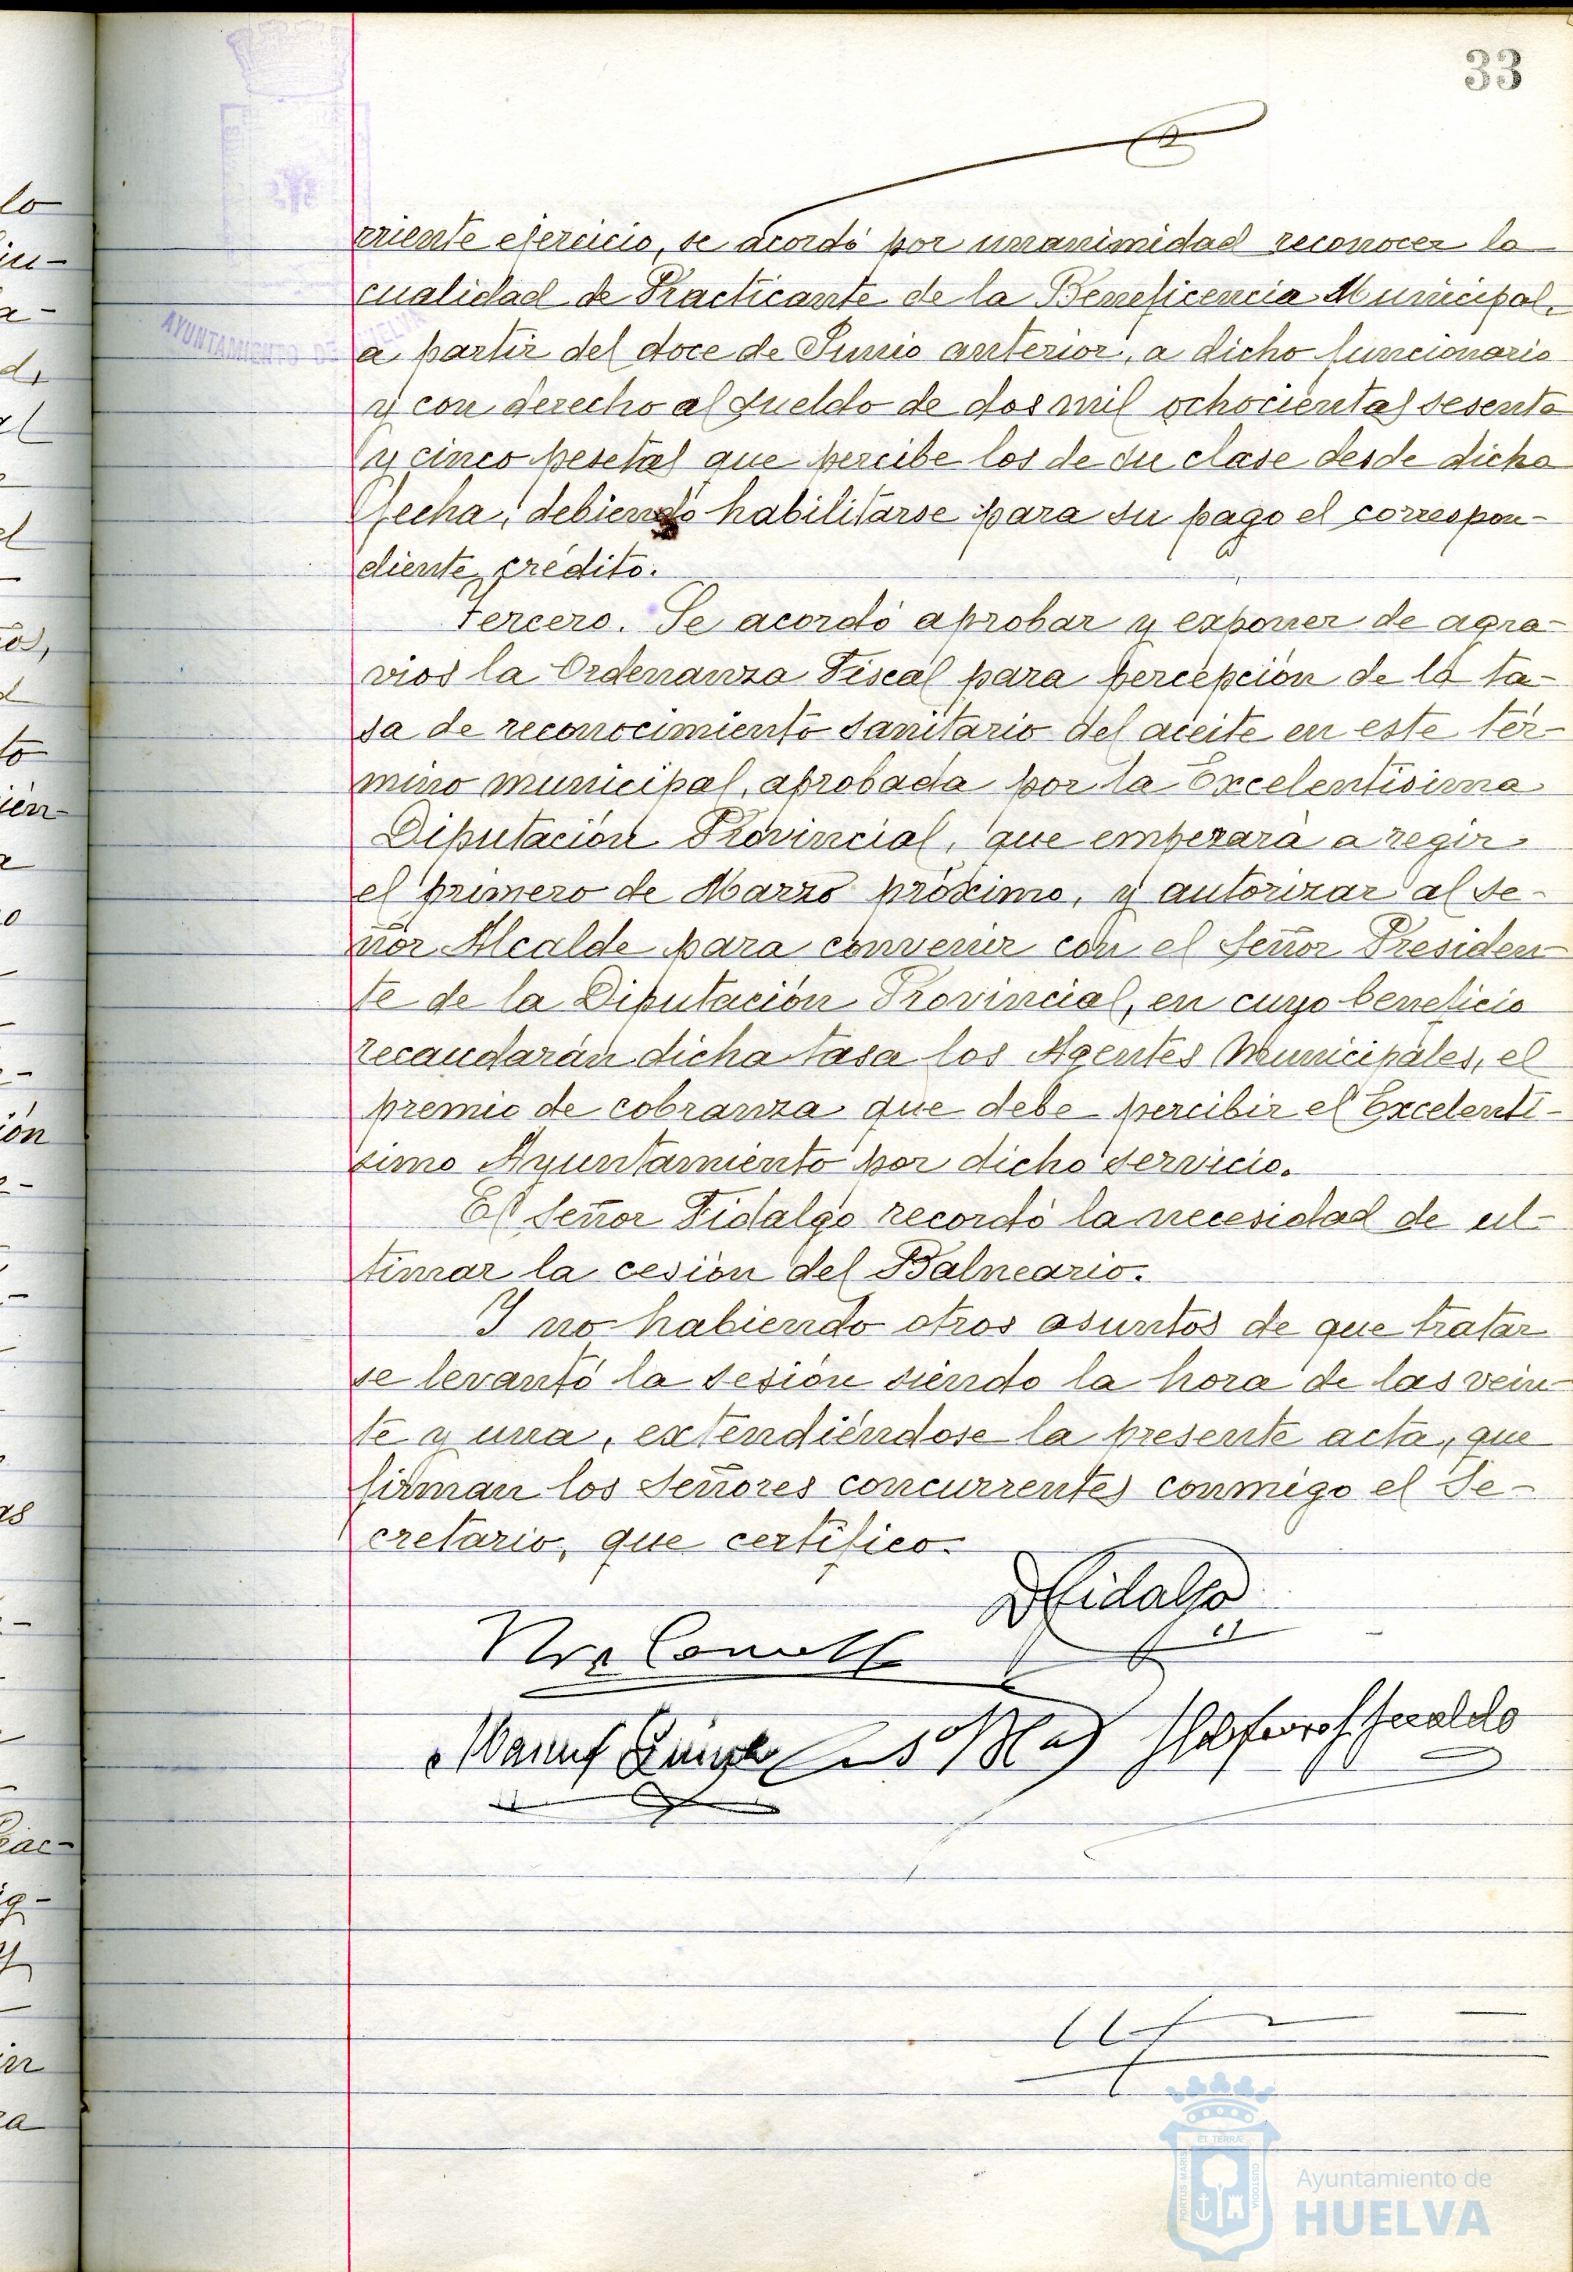 33
rriente ejercicio, se acordó por unanimidad reconocer la
cualidad de Practicante de la Beneficencia Municipal,
a partir del doce de Junio anterior, a dicho funcionario
y con derecho al sueldo de dos mil ochocientas sesenta
y cinco pesetas que percibe los de su clase desde dicha
fecha, debiendo habilitarse para su pago el correspon-
diente crédito.
Tercero. Se acordó aprobar y exponer de agra-
vios la Ordenanza Fiscal para percepción de la ta-
sa de reconocimiento sanitario del aceite en este tér-
mino municipal, aprobada por la Excelentísima
Diputación Provincial, que empezará a regir
el primero de Marzo próximo, y autorizar al Se-
ñor Alcalde para convenir con el Señor Presiden-
te de la Diputación Provincial, en cuyo beneficio
recaudarán dicha tasa los Agentes Municipales, el
premio de cobranza que debe percibir el Excelentí-
simo Ayuntamiento por dicho servicio.
El Señor Fidalgo recordó la necesidad de ul-
timar la cesión del Balneario.
Y no habiendo otros asuntos de que tratar
se levantó la sesión siendo la hora de las vein-
te y una, extendiéndose la presente acta, que
firman los Señores concurrentes conmigo el Se-
cretario, que certifico.
DFidalgo
AYUNTAMIENTO DE HUELVA
PORTUS MARIS ET TERRAE CUSTODIA
Ayuntamiento de
HUELVA